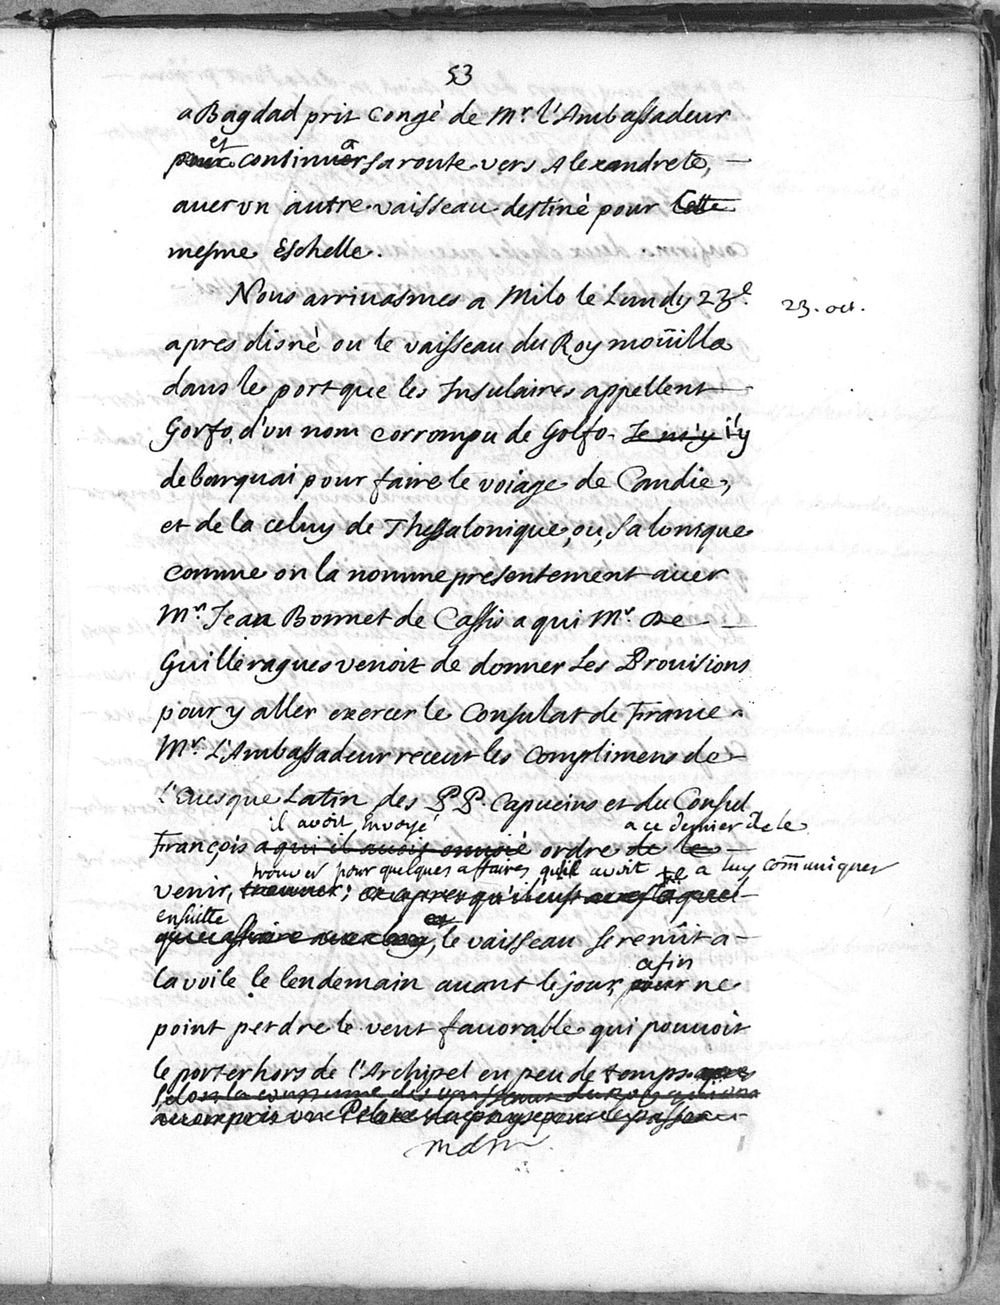 53
a Bagdad prit congé de Mr. l'Ambassadeur
et continua sa route vers Alexandrete,
avec vn autre vaisseau destiné pour cette
mesme Eschelle.
Nous arrivasmes a Milo le Lundy 23e.
23. oct.
apres disné ou le vaisseau du Roy moüilla
dans le port que les Insulaires appellent
Gorfo, d'vn nom corrompu de Golfo. Je m'y i'y
debarquai pour faire le voiage de Candie,
et de la celuy de Thessalonique, ou, Salonique
comme on la nomme presentement avec
Mr. Jean Bonnet de Cassis a qui Mr. De
Guilleragues venoit de donner Les Provisions
pour y aller exercer le Consulat de France.
Mr. L'Ambassadeur receut les Complimens de
l'Evesque Latin des PP. Capucins et du Consul
il avoit Envoyé a ce dernier de le
François a qui il avoit envoié ordre de le
trouver pour quelques affaires qu'il avoit a luy com̃uniquer
venir, trouver; et apres qu'il eust
ensuitte
le vaisseau se remit a
la voile le lendemain avant le jour, pour ne
afin
point perdre le vent favorable qui pouvoit
le porter hors de l'Archipel en peu de temps
selon la coustume des vaisseaux du Roy
mdm